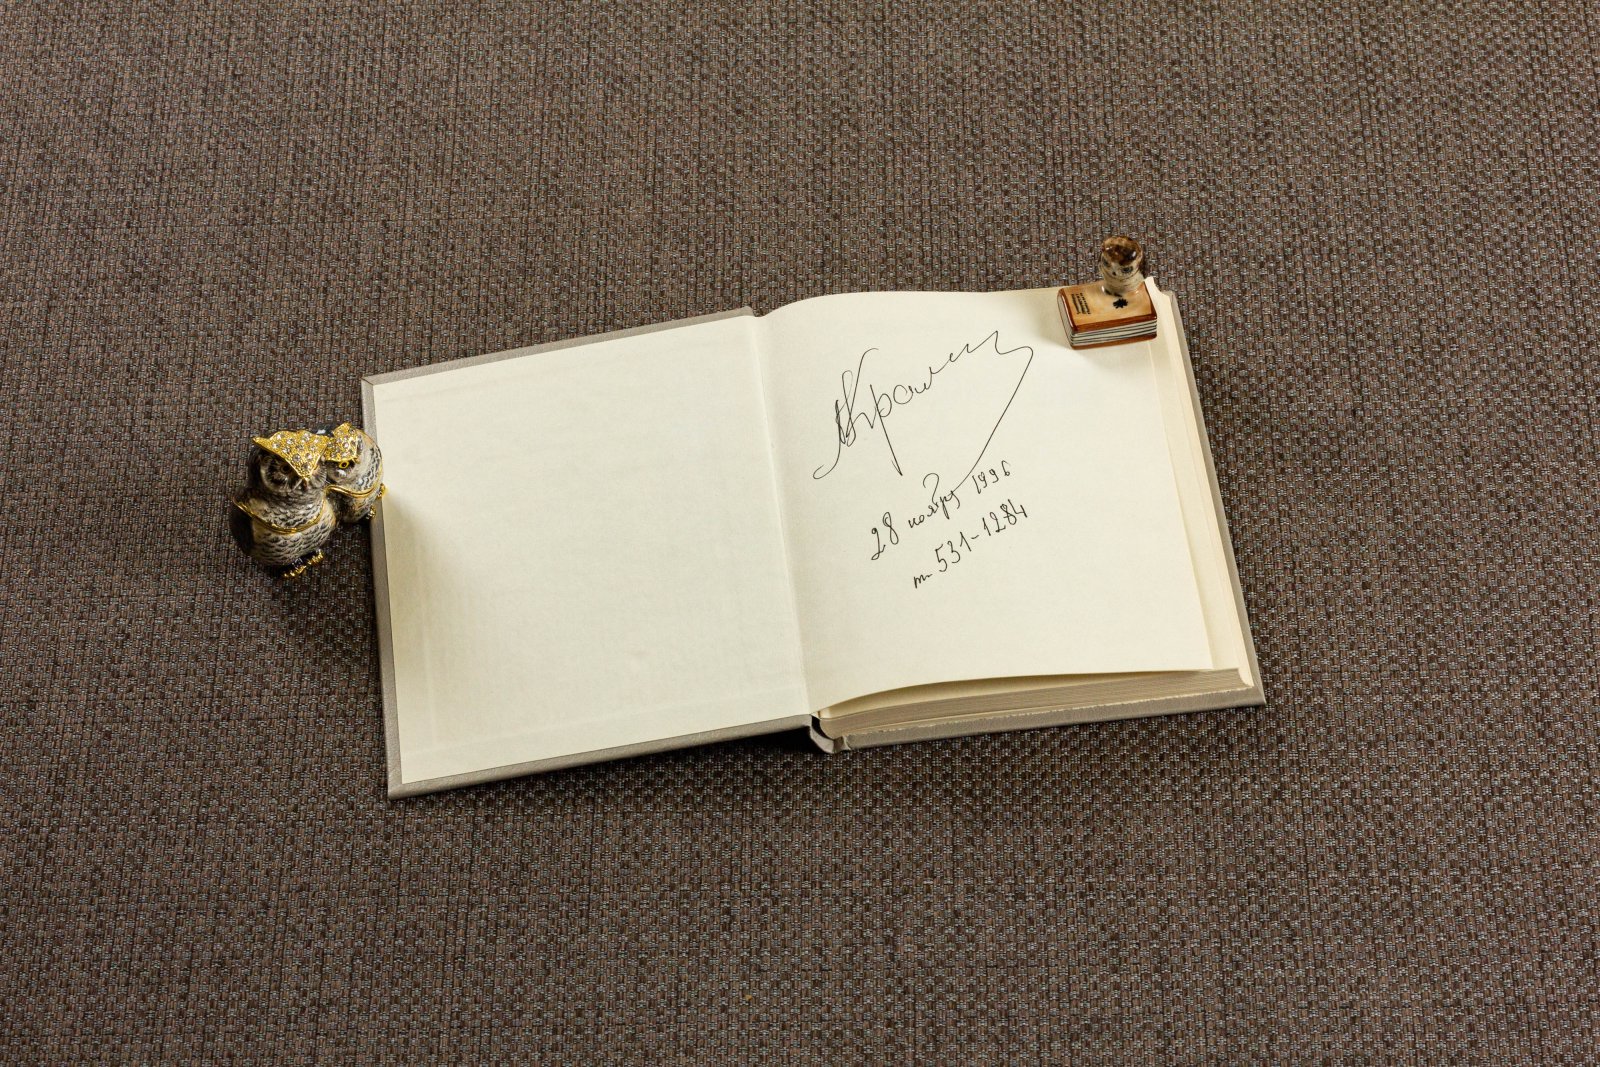 28 ноября 1996
т. 531-1284